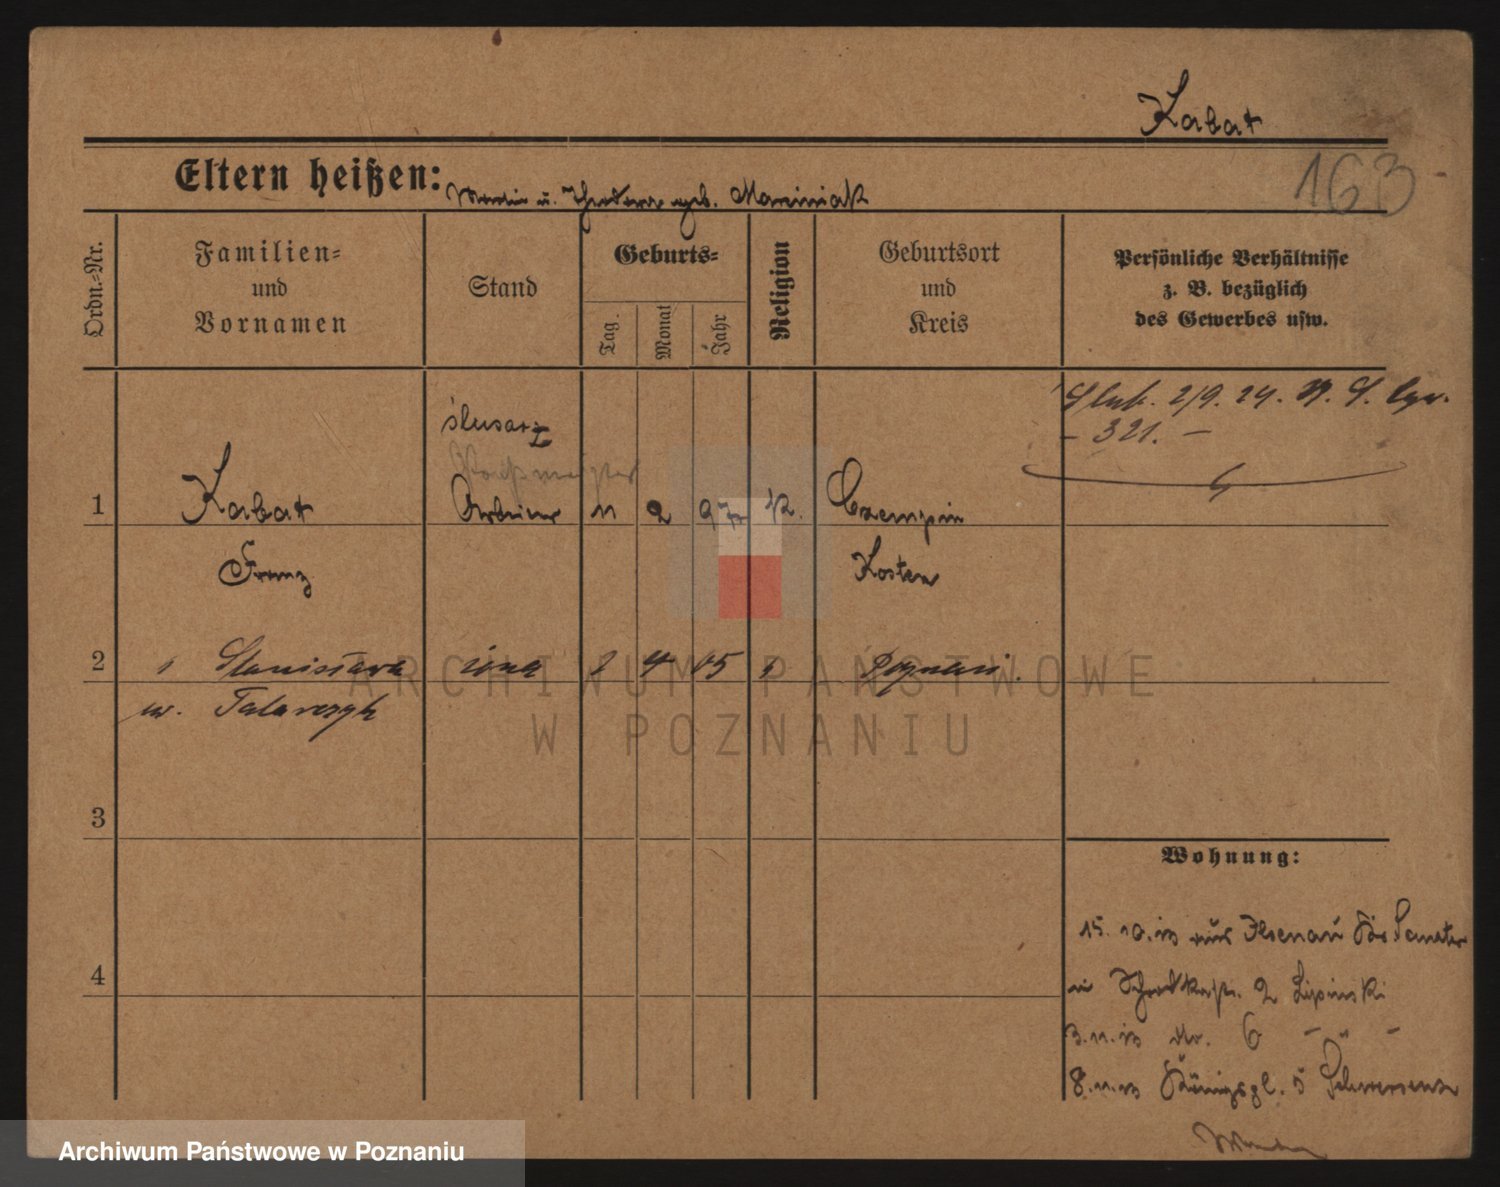 Kabat
163
Eltern heißen: Martin u. Theodora geb. Marciniak
Ordn.-Nr.
Familien- und Vornamen
Stand
Geburts-
Tag.
Monat
Jahr
Religion
Geburtsort und Kreis
Persönliche Verhältnisse z. B. bezüglich des Gewerbes usw.
Ślub. 2/9. 24.
- 321. -
ślusarz
1 Kabat Arbeiter 11 2 97 K. Czempin
Franz Kosten
2 Stanisława żona 2 4 05 Poznań.
Talarczyk
3
4
Wohnung:
15. 10. 13 aus Ilsenau Kr.
in 2 Lipinski
3. 11. 13 6 - " -
8. 11. 13 Königspl. 5 Schwersenz
ARCHIWUM PAŃSTWOWE
W POZNANIU
Archiwum Państwowe w Poznaniu